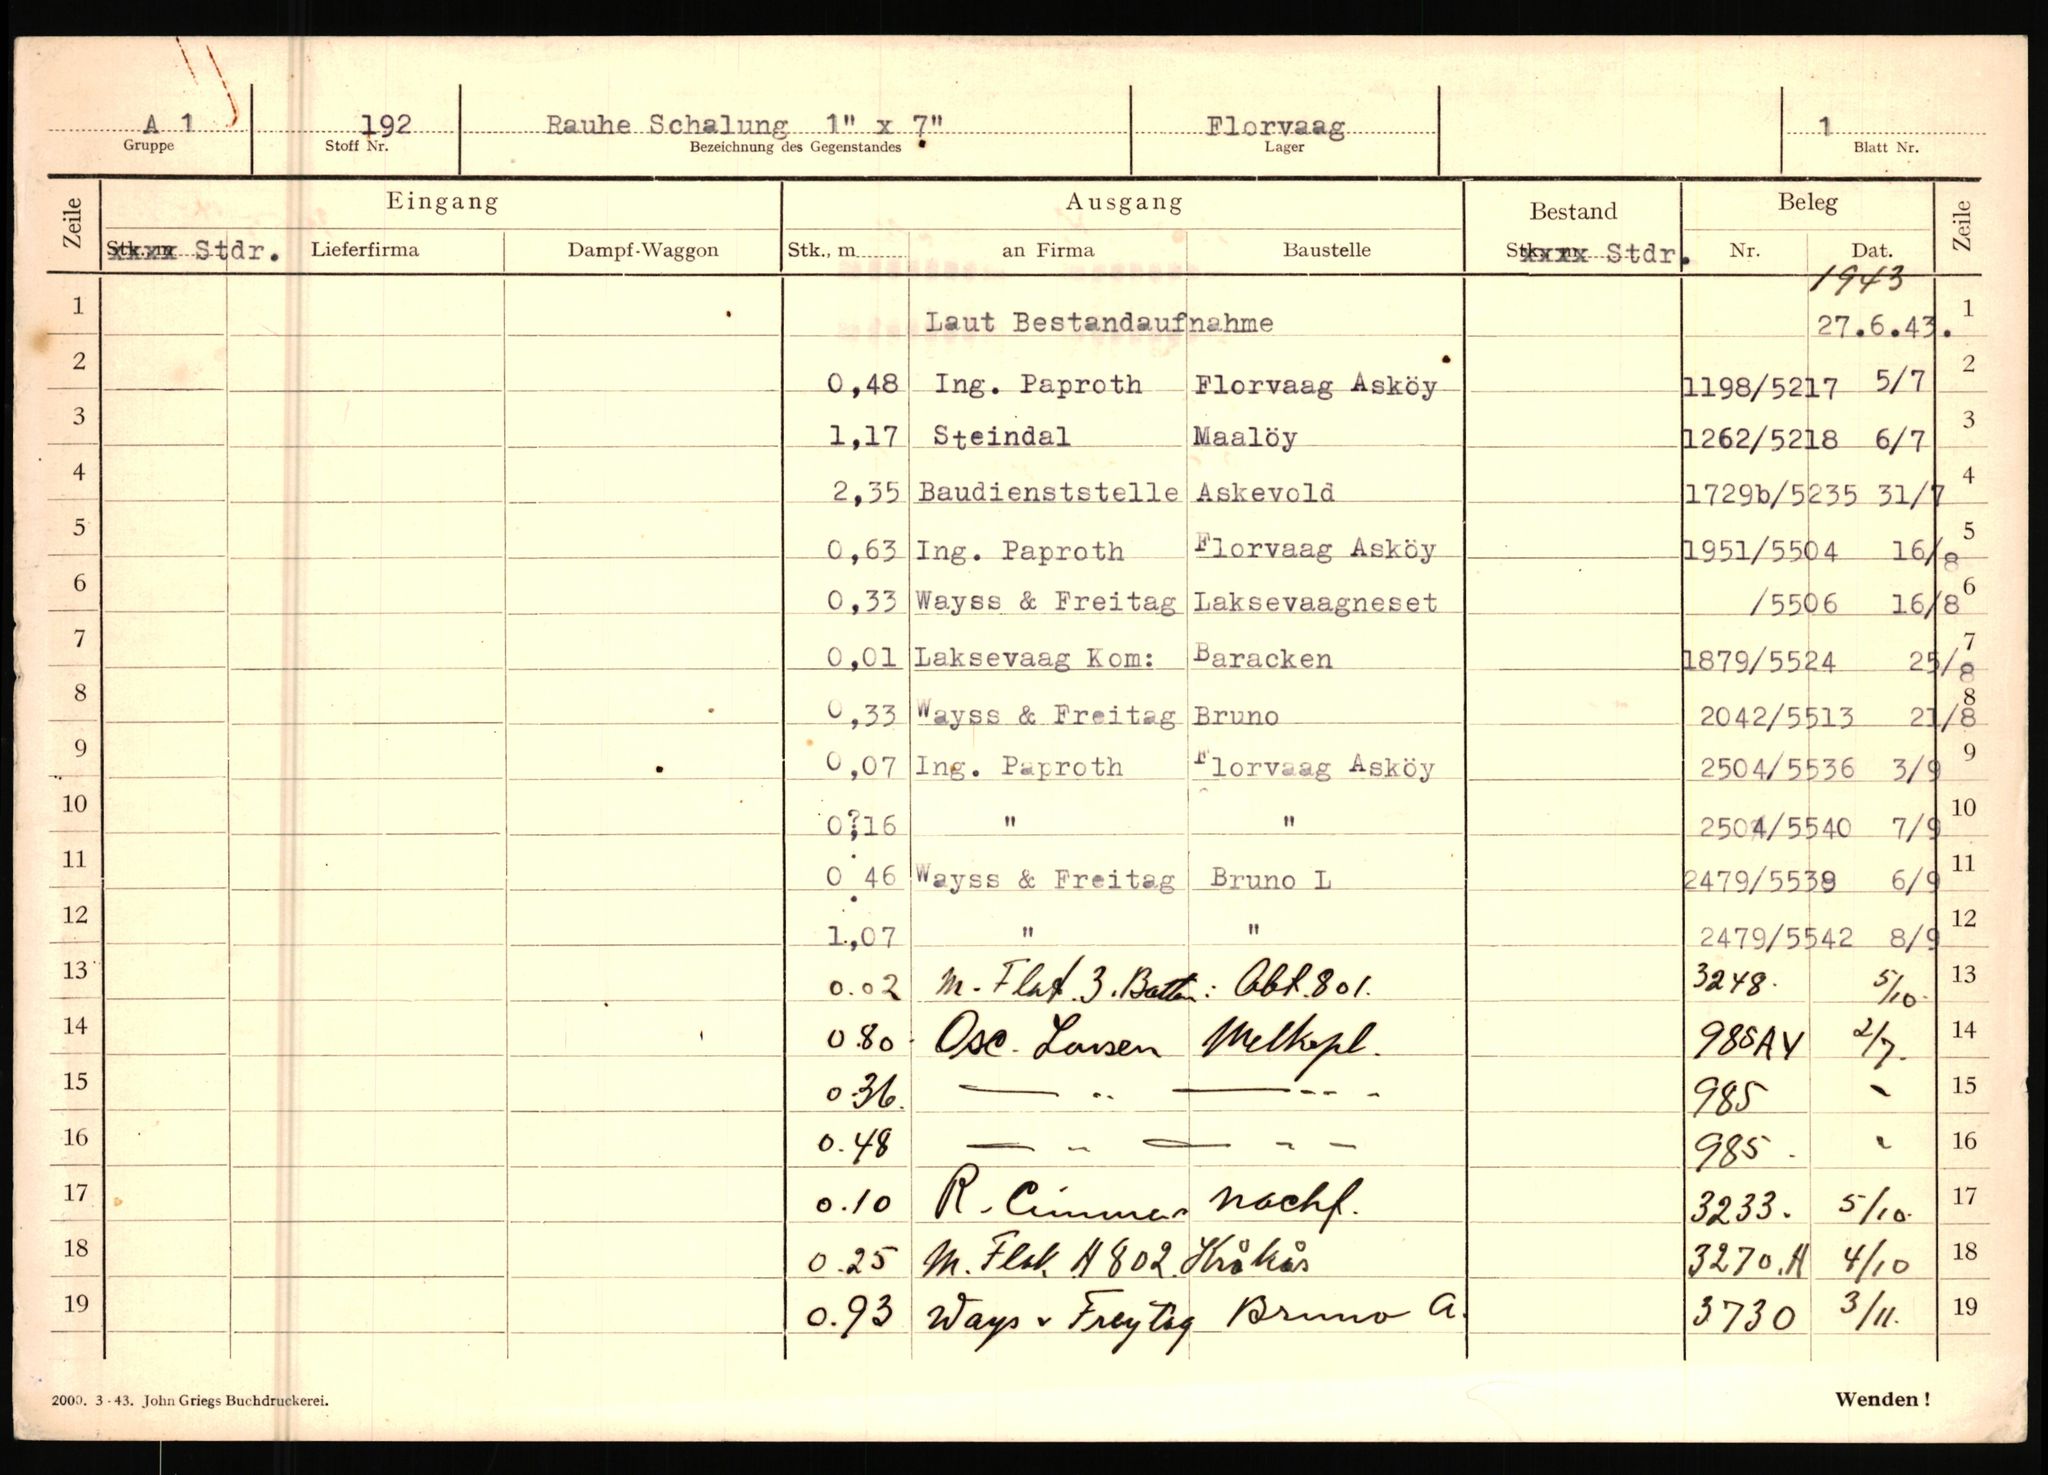 A 1 192 Rauhe Schalung 1" x 7" Florvaag 1
Gruppe Stoff Nr. Bezeichnung des Gegenstandes Lager Blatt Nr.
Zeile Eingang Ausgang Bestand Beleg Zeile
Stdr. Lieferfirma Dampf-Waggon Stk., m an Firma Baustelle Stdr. Nr. Dat.
1943
1 Laut Bestandaufnahme 27.6.43. 1
2 0,48 Ing. Paproth Florvaag Asköy 1198/5217 5/7 2
3 1,17 Steindal Maalöy 1262/5218 6/7 3
4 2,35 Baudienststelle Askevold 1729b/5235 31/7 4
5 0,63 Ing. Paproth Florvaag Asköy 1951/5504 16/8 5
6 0,33 Wayss & Freitag Laksevaagneset /5506 16/8 6
7 0,01 Laksevaag Kom: Baracken 1879/5524 25/8 7
8 0,33 Wayss & Freitag Bruno 2042/5513 21/8 8
9 0,07 Ing. Paproth Florvaag Asköy 2504/5536 3/9 9
10 0,16 " " 2504/5540 7/9 10
11 0 46 Wayss & Freitag Bruno L 2479/5539 6/9 11
12 1,07 " " 2479/5542 8/9 12
13 0.02 M. Flak 3. Abt. 801. 3248. 5/10. 13
14 0.80 Osc. Larsen Melkepl. 985 2/7. 14
15 0.36. — " — " - 985 " 15
16 0.48 — " — " - 985. " 16
17 0.10 R. Nachf. 3233. 5/10. 17
18 0.25 M. Flak A 802. Kråkås 3270.A 4/10 18
19 0.93 Ways & Freytag Bruno A. 3730 3/11. 19
2000. 3-43. John Griegs Buchdruckerei. Wenden!